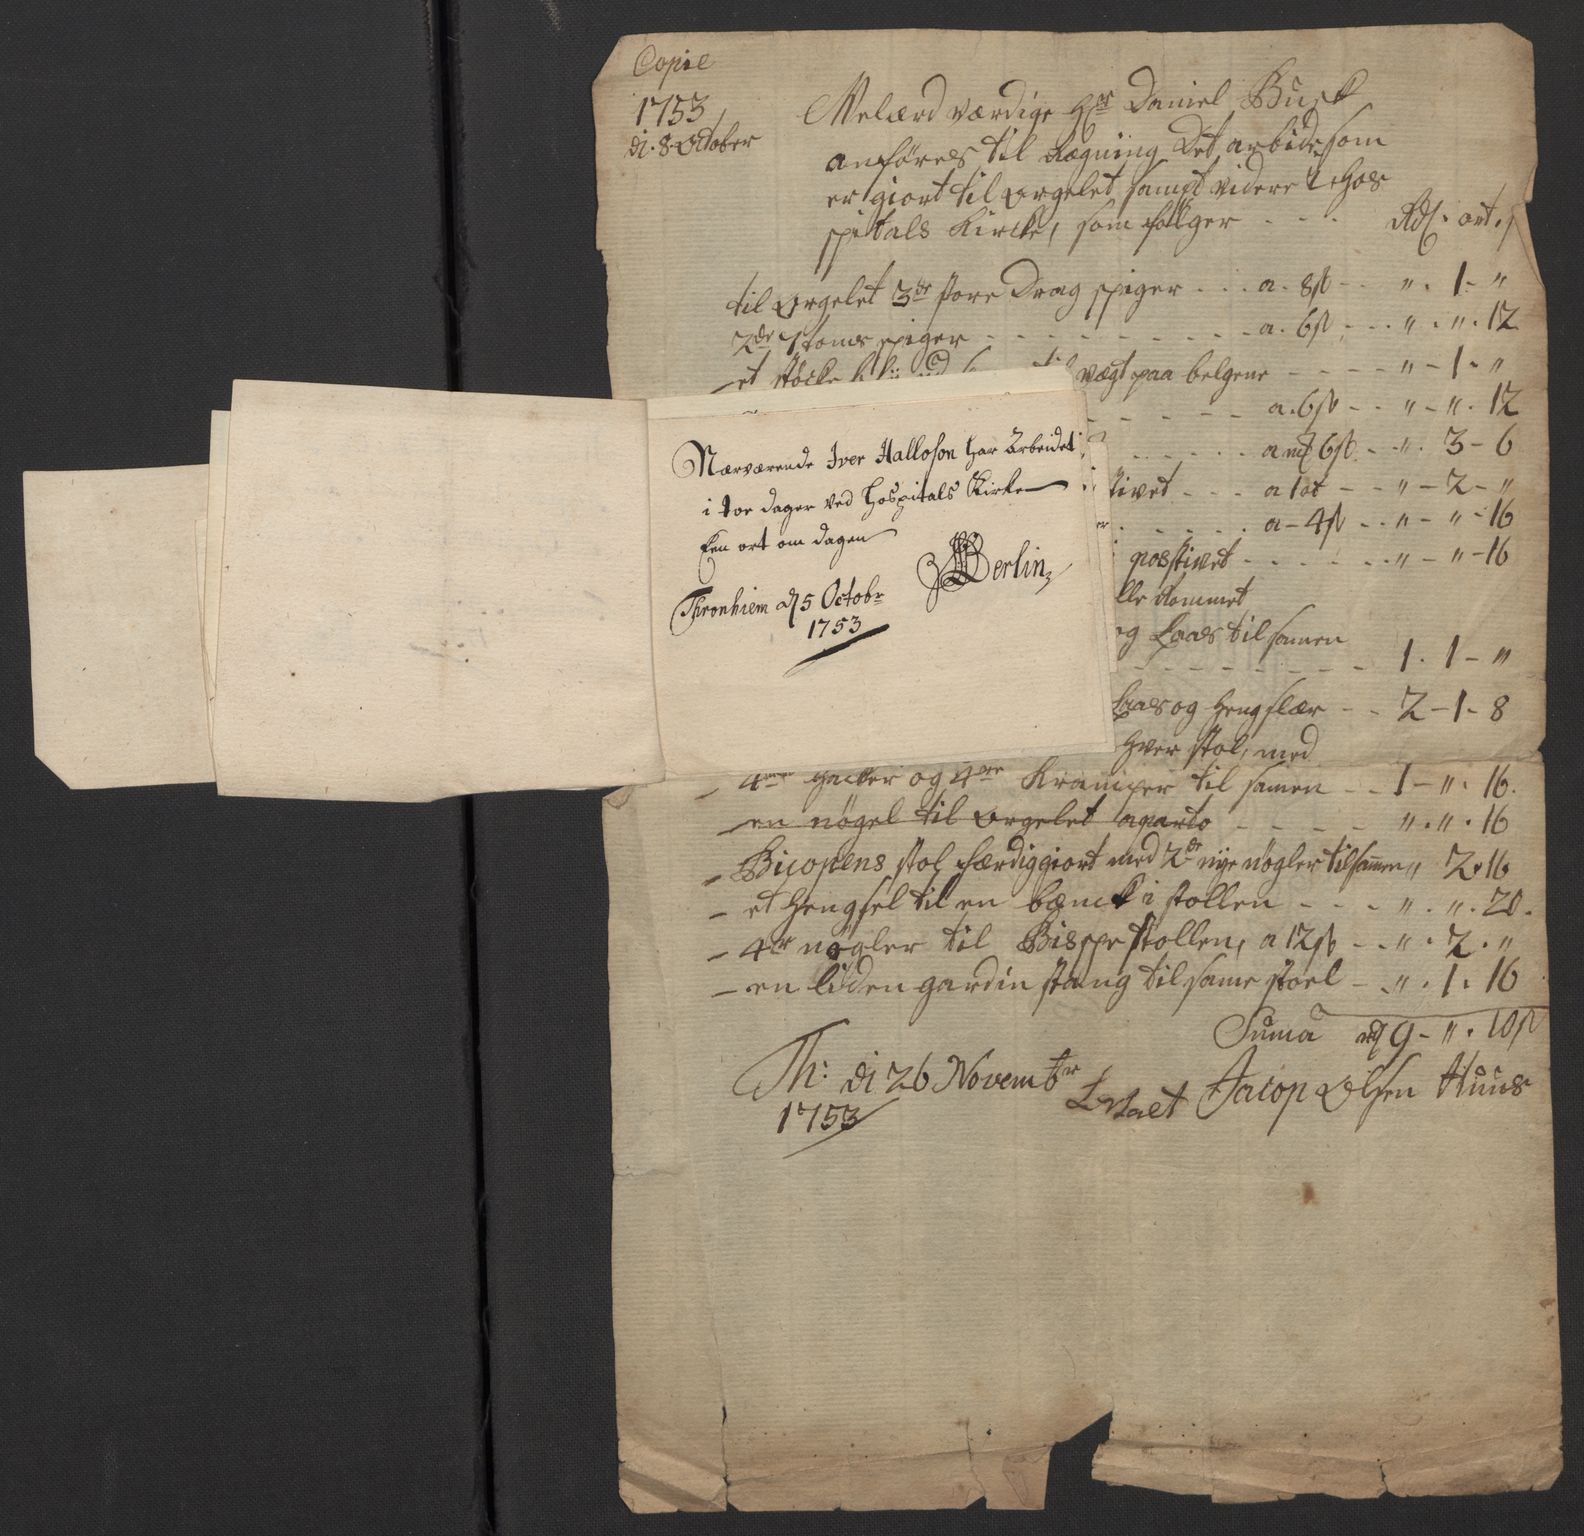 Copie
1753
di. 8 October
Velærdværdige Hr Daniel Busk
anføres til Rægning Det arbide som
er giort til orgelet samt videre i Hos
spitals Kircke, som følger - - - Rdl. ort. s
til orgelet 3de store Drag spiger - - - a. 8s - - " . 1 - "
2de spiger - - - a. 6s - - " . " . 12
et støcke vægt paa belgene - - - - " - 1 - "
- - - a. 6s - - " - " . 12
- - - a 6s - - " . 3 - 6
- - - a 1ort - - " - 2 - "
- - - a - 4s - - " - " - 16
positivet - - - - " - " - 16
og Laas til samen
- - - 1 . 1 - "
Laas og Hengslær - - 2 - 1 - 8
Hver stol, med
- 4re Hacker og 4re Kramper til samen - - 1 - " . 16.
- en nøgel til orgelet aparto - - - - " . " . 16
- Bicopens stol færdiggiort med 2de nye nøgler tilsammen " 2 . 16
- et Hengsel til en bænck i stollen - - - " . " . 20.
- 4re nøgler til Bispe stollen, a 12s - - " . 2 . "
- en liden gardin stang til same stoel - - " . 1 . 16
Suma rd 9 - " . 10s
Th: di 26 Novembr
1753
Jacop Olsen Huus
Nærværende Iver Halloson har Arbeidet
i toe dager ved Hospitals Kirke
Een ort om dagen
Thronhiem d 5 Octobr
1753
Berlin